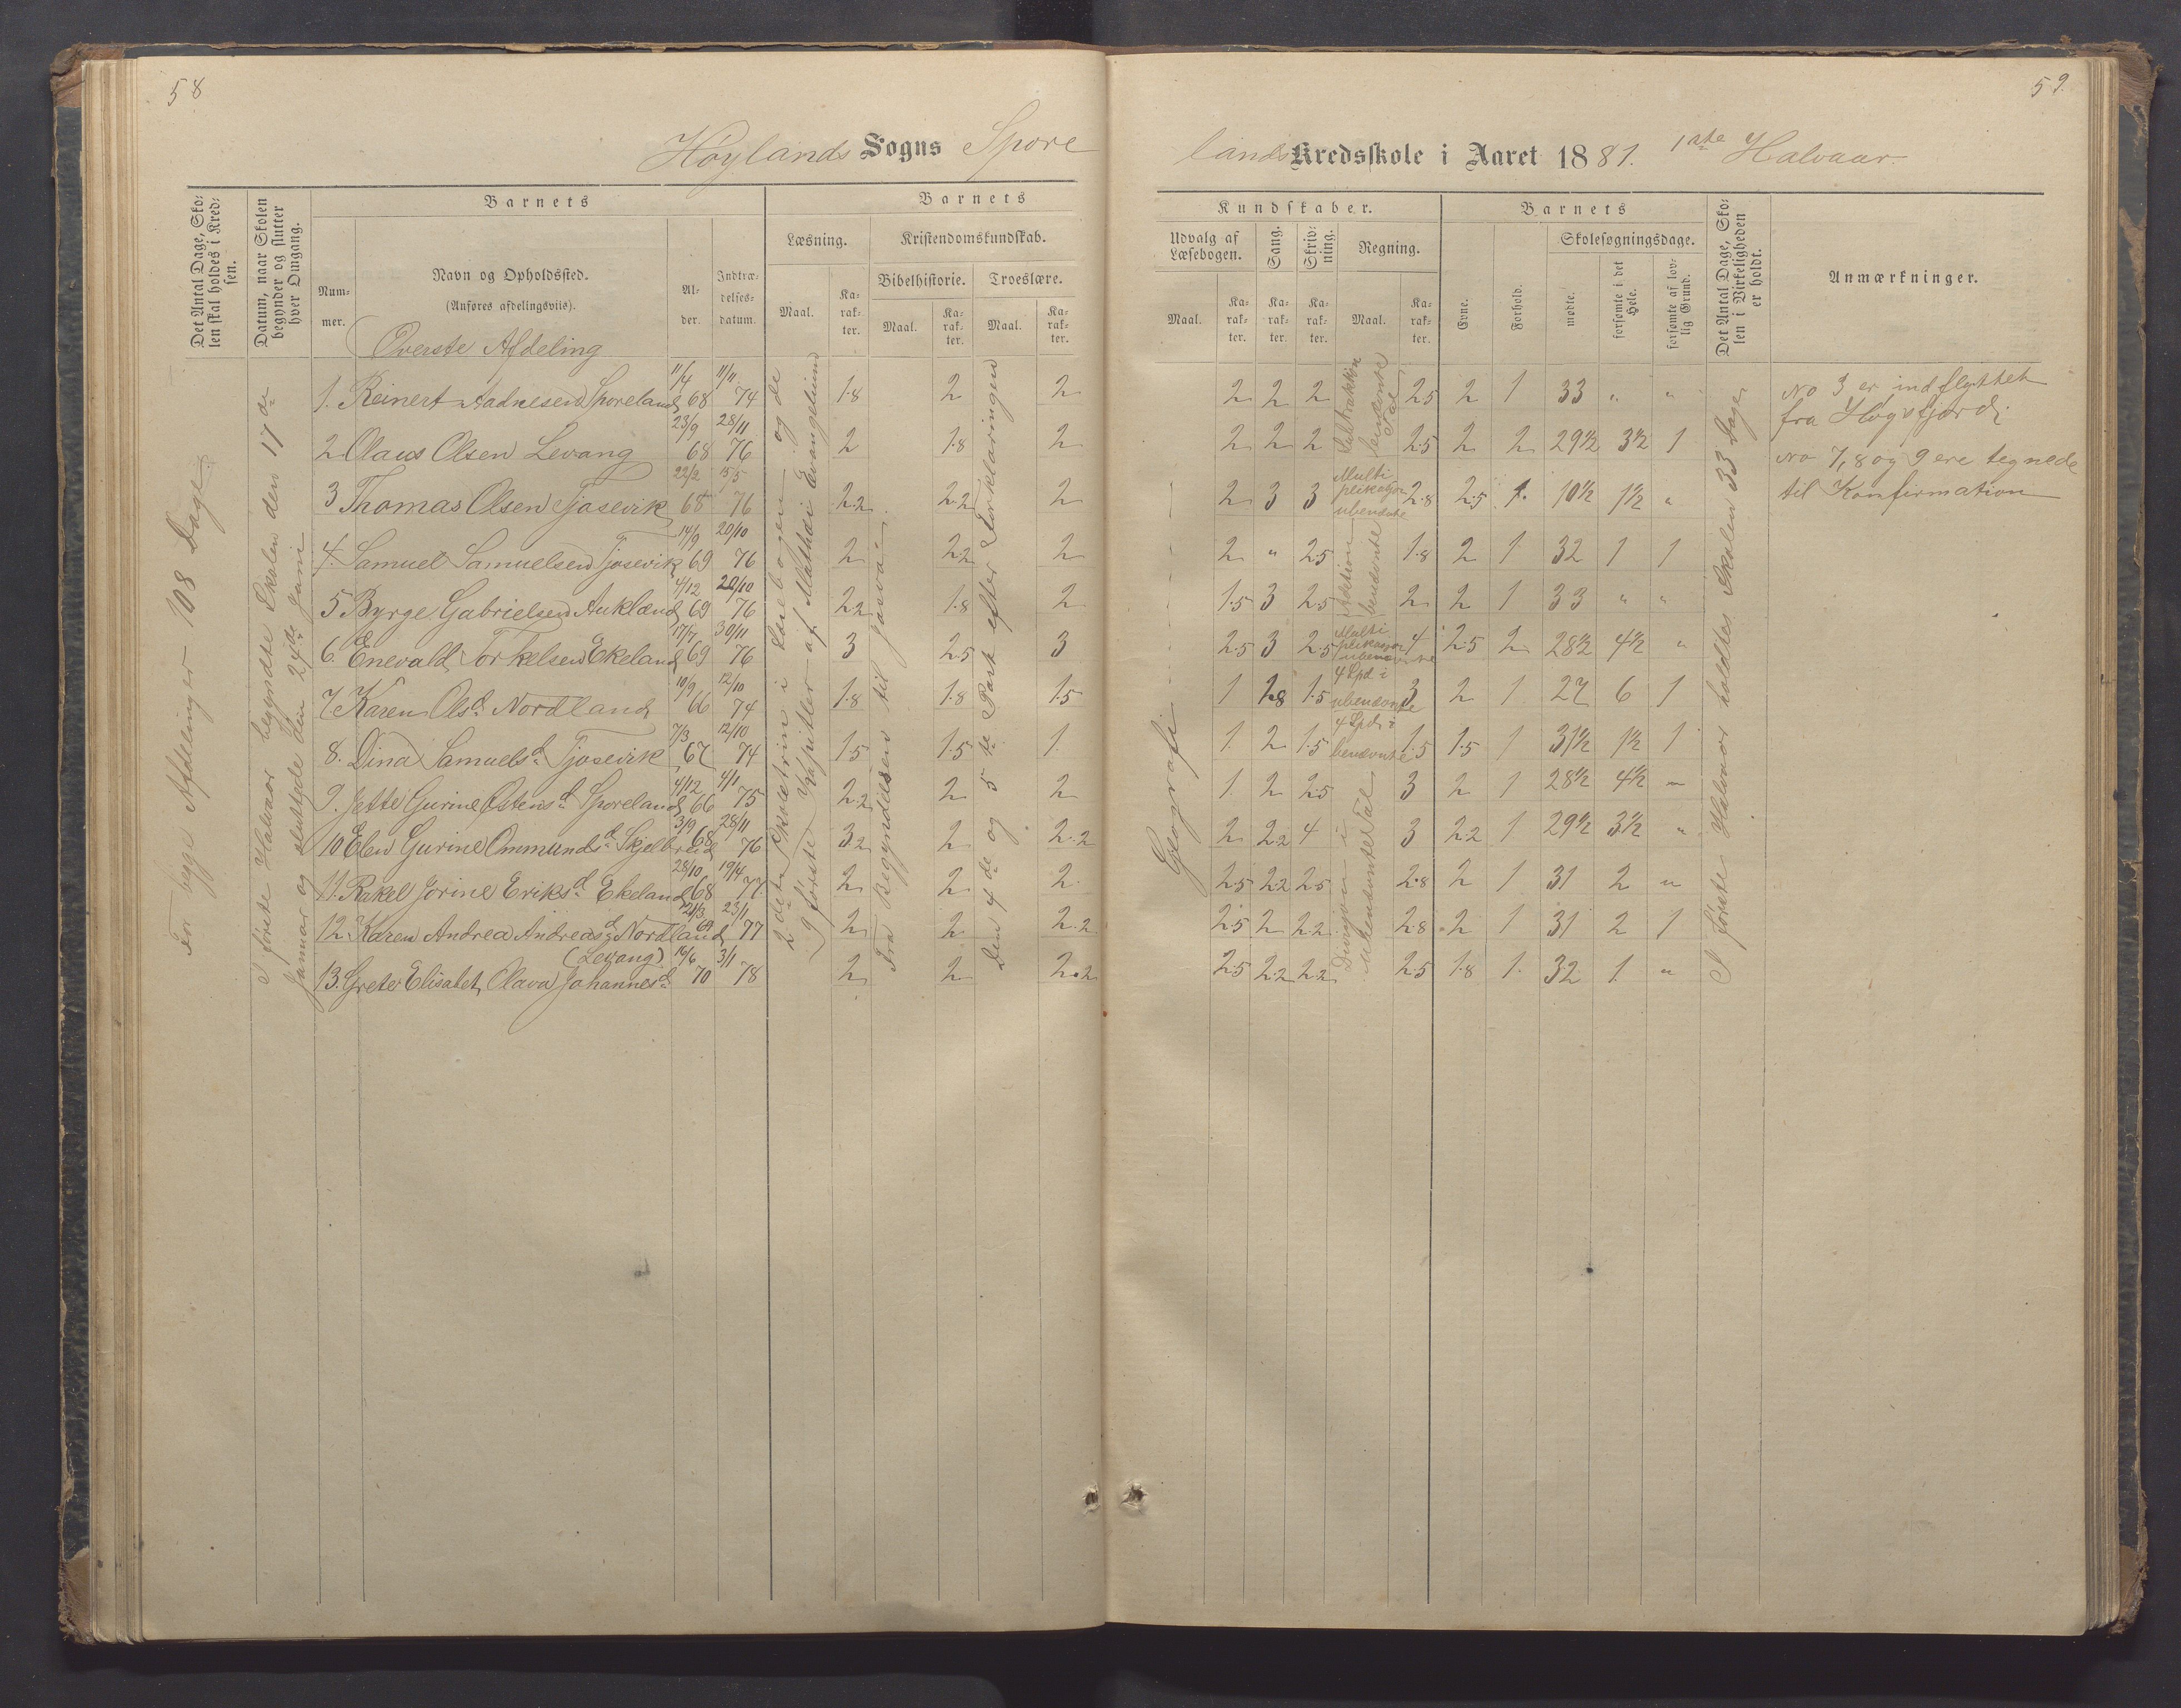 58
59.
Høylands Sogns Spore
lands Kredsskole i Aaret 1881. 1ste Halvaar.
Det Antal Dage, Sko-
len skal holdes i Kred-
sen.
Datum, naar Skolen
begynder og slutter
hver Omgang.
Barnets
Num-
mer.
Navn og Opholdssted.
(Anføres afdelingsviis).
Al-
der.
Indtræ-
delses-
datum.
Barnets
Læsning.
Maal.
Ka-
rak-
ter.
Kristendomskundskab.
Bibelhistorie.
Maal.
Ka-
rak-
ter.
Troeslære.
Maal.
Ka-
rak-
ter.
Kundskaber.
Udvalg af
Læsebogen.
Maal.
Ka-
rak-
ter.
Sang.
Ka-
rak-
ter.
Skriv-
ning.
Ka-
rak-
ter.
Regning.
Maal.
Ka-
rak-
ter.
Barnets
Evne.
Forhold.
Skolesøgningsdage.
mødte.
forsømte i det
Hele.
forsømte af lov-
lig Grund.
Det Antal Dage, Sko-
len i Virkeligheden
er holdt.
Anmærkninger.
Overste Afdeling
For begge Afdelinger 108 Dage
I første Halvaar begyndte Skolen den 17de
Januar og sluttede den 24de Juni
2det Skoletrin i Læsebogen og de
9 første Kapitler af Mathæi Evangelium
Fra Begyndelsen til
Den 4de og 5te Part efter Forklaringen
Geografi
I første Halvaar holdtes Skolen 33 Dage
1. Reinert Aadnesen Sporeland 11/4 68 11/11 74 1.8 2 2 2 2 2 Subtraktion benævnte Tal 2.5 2 1 33 " "
2 Olaus Olsen Levang 23/9 68 28/11 76 2 1.8 2 2 2 2 2.5 2 2 29½ 3½ 1
3 Thomas Olsen Tjosevik 22/2 68 15/5 76 2.2 2.2 2 2 3 3 Multiplikasjon ubenævnte 2.8 2.5 1. 10½ 1½ "
4. Samuel Samuelsen Tjosevik 14/9 69 20/10 76 2 2.2 2 2 " 2.5 Addition benævnte 1.8 2 1 32 1 1
5 Byrge Gabrielsen Aukland 4/12 69 20/10 76 2.2 1.8 2 1.5 3 2.5 2 2 1 33 " "
6. Enevald Torkelsen Ekeland 17/7 69 30/11 76 3 2.5 3 2.5 3 2.5 Multiplikasjon ubenævnte 4 2.5 2 28½ 4½ "
7 Karen Olsd. Nordland 10/9 66 12/10 74 1.8 1.8 1.5 1 1.8 1.5 4 Spd. i ubenævnte 3 2 1 27 6 1
8. Dina Samuelsd. Tjosevik 7/3 67 12/10 74 1.5 1.5 1. 1. 2 1.5 4 Spd. i benævnte 1.5 1.5 1 31½ 1½ 1
9. Jette Gurine Østensd. Sporeland 4/12 66 4/1 75 2.2 2 2 1. 2 2.5 3 2 1 28½ 4½ "
10 Elen Gurine Ommundsd. Skjelbreid 3/9 68 28/11 76 3.2 2 2.2 2 2.2 4 Divisjon i ubenævnte Tal 3 2.2 1 29½ 3½ "
11. Rakel Jorine Eriksd. Ekeland 28/10 68 19/4 77. 2 2 2. 2.5 2.2 2.5 2.8 2 1 31 2 "
12. Karen Andrea Andreasd. Nordland 69 23/1 77 2 2 2.2 2.5 2 2.2 2.8 2 1 31 2 1
(Levang)
13. Grete Elisabet Olava Johannesd. 16/6 70 3/1 78 2 2 2.2 2.5 2.2 2.2 2.5 1.8 1. 32 1. "
No 3 er indflyttet
fra Høgsfjord.
No 7, 8 og 9 ere tegnede
til Konfirmation